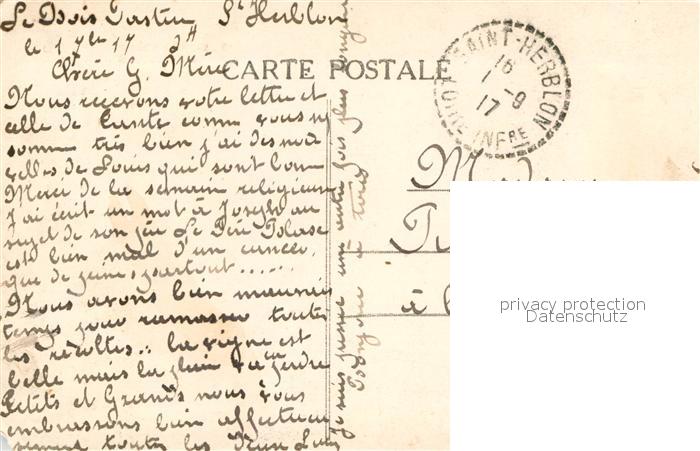 Le Bois Tastin St Herblon
le 1 7bre 17
Chère G. Mère
CARTE POSTALE
Nous recevons votre lettre et
celle de tante comme vous n
somme très bien j'ai des nou
velles de Louis qui sont bonn
Merci de la semain religieuse
J'ai écrit un mot à Joseph au
sujet de son jeu Le Père
est bien mal d'un cancer,
que de peines partout......
Nous avons bien mauvais
temps pour ramasser toutes
les récoltes.. la vigne est
belle mais la pluie va la perdre
Petits et Grands nous vous
embrassons bien affectueu
sement toutes les deux
je suis une autre fois plus
Bonjour à tous
SAINT-HERBLON
16
1 -9
17
LOIRE-INFRE
M
à
privacy protection
Datenschutz